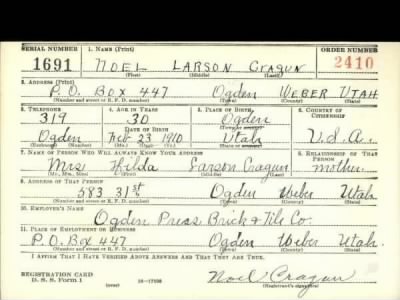 SERIAL NUMBER 1. NAME (Print) ORDER NUMBER
1691 NOEL LARSON Cragun 2410
(First) (Middle) (Last)
2. ADDRESS (Print)
P.O. Box 447 Ogden WEBER UTAH
(Number and street or R. F. D. number) (Town) (County) (State)
3. TELEPHONE 4. AGE IN YEARS 5. PLACE OF BIRTH 6. COUNTRY OF CITIZENSHIP
319 30 Ogden
DATE OF BIRTH (Town or county)
Ogden Feb 23 1910 Utah U.S.A.
(Exchange) (Number) (Mo.) (Day) (Yr.) (State or country)
7. NAME OF PERSON WHO WILL ALWAYS KNOW YOUR ADDRESS 8. RELATIONSHIP OF THAT PERSON
Mrs Hilda Larson Cragun mother
(Mr., Mrs., Miss) (First) (Middle) (Last)
9. ADDRESS OF THAT PERSON
583 31st Ogden Weber Utah
(Number and street or R. F. D. number) (Town) (County) (State)
10. EMPLOYER'S NAME
Ogden Press Brick & Tile Co.
11. PLACE OF EMPLOYMENT OR BUSINESS
P.O. Box 447 Ogden Weber Utah.
(Number and street or R. F. D. number) (Town) (County) (State)
I AFFIRM THAT I HAVE VERIFIED ABOVE ANSWERS AND THAT THEY ARE TRUE.
REGISTRATION CARD
D. S. S. Form 1 (over) 16-17105 Noel Cragun
(Registrant's signature)